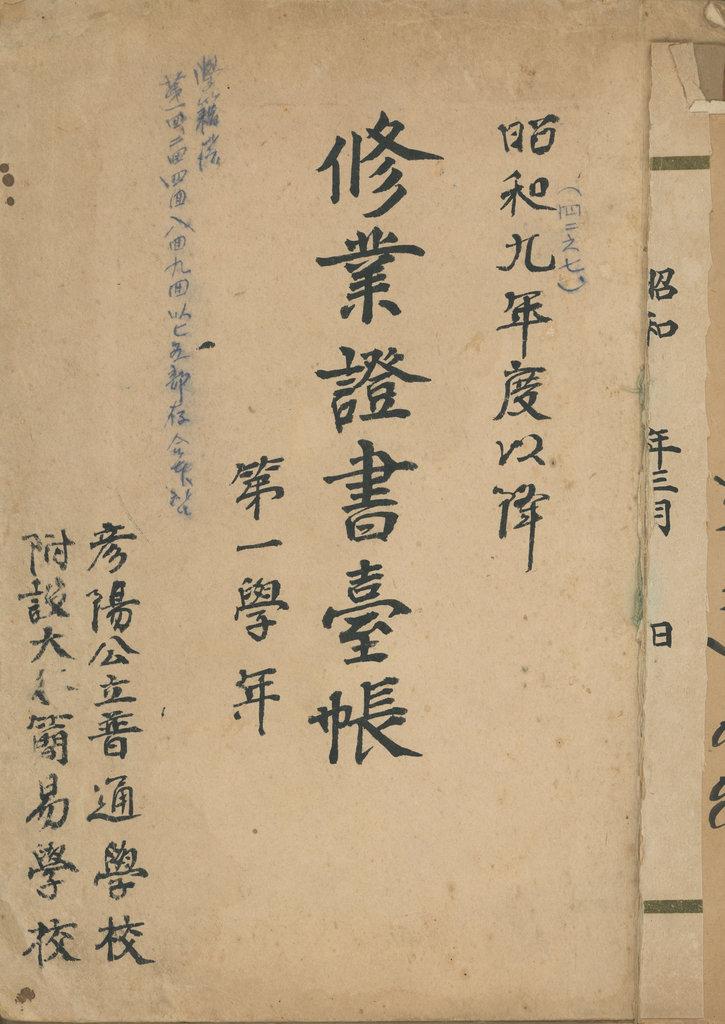 昭和 年三月 日
昭和九年度以降
(四二六七)
修業證書臺帳
第一學年
學籍簿
第一回二回四回八回九回以上五部存
彦陽公立普通學校
附設大仁簡易學校